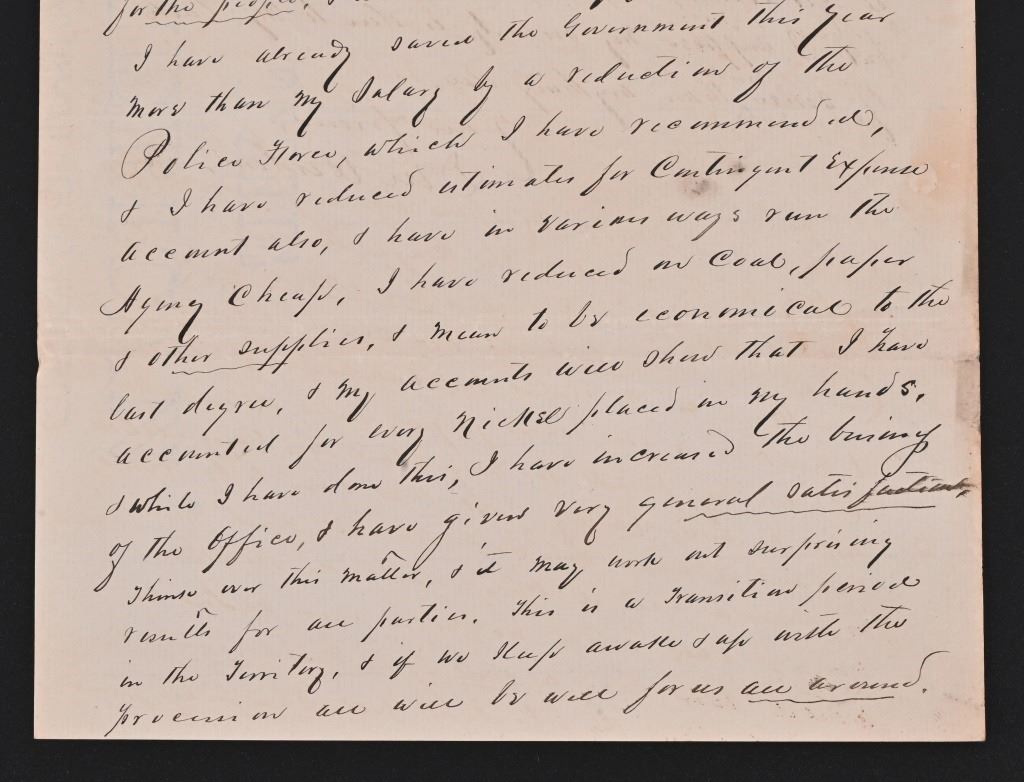 for the people,
I have already saved the Government this year
more than my Salary by a reduction of the
Police Force, which I have recommended,
& I have reduced estimates for Contingent Expense
account also, & have in various ways run the
Agency Cheap, I have reduced on Coal, paper
& other supplies, & mean to be economical to the
last degree, & my accounts will show that I have
accounted for every Nickel placed in my hands,
& while I have done this, I have increased the business
of the Office, & have given very general satisfaction.
Think over this matter, & it may work out surprising
results for all parties. This is a Transition period
in the Territory, & if we Keep awake & up with the
procession all will be well for us all around.